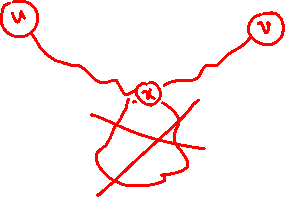 u
v
x